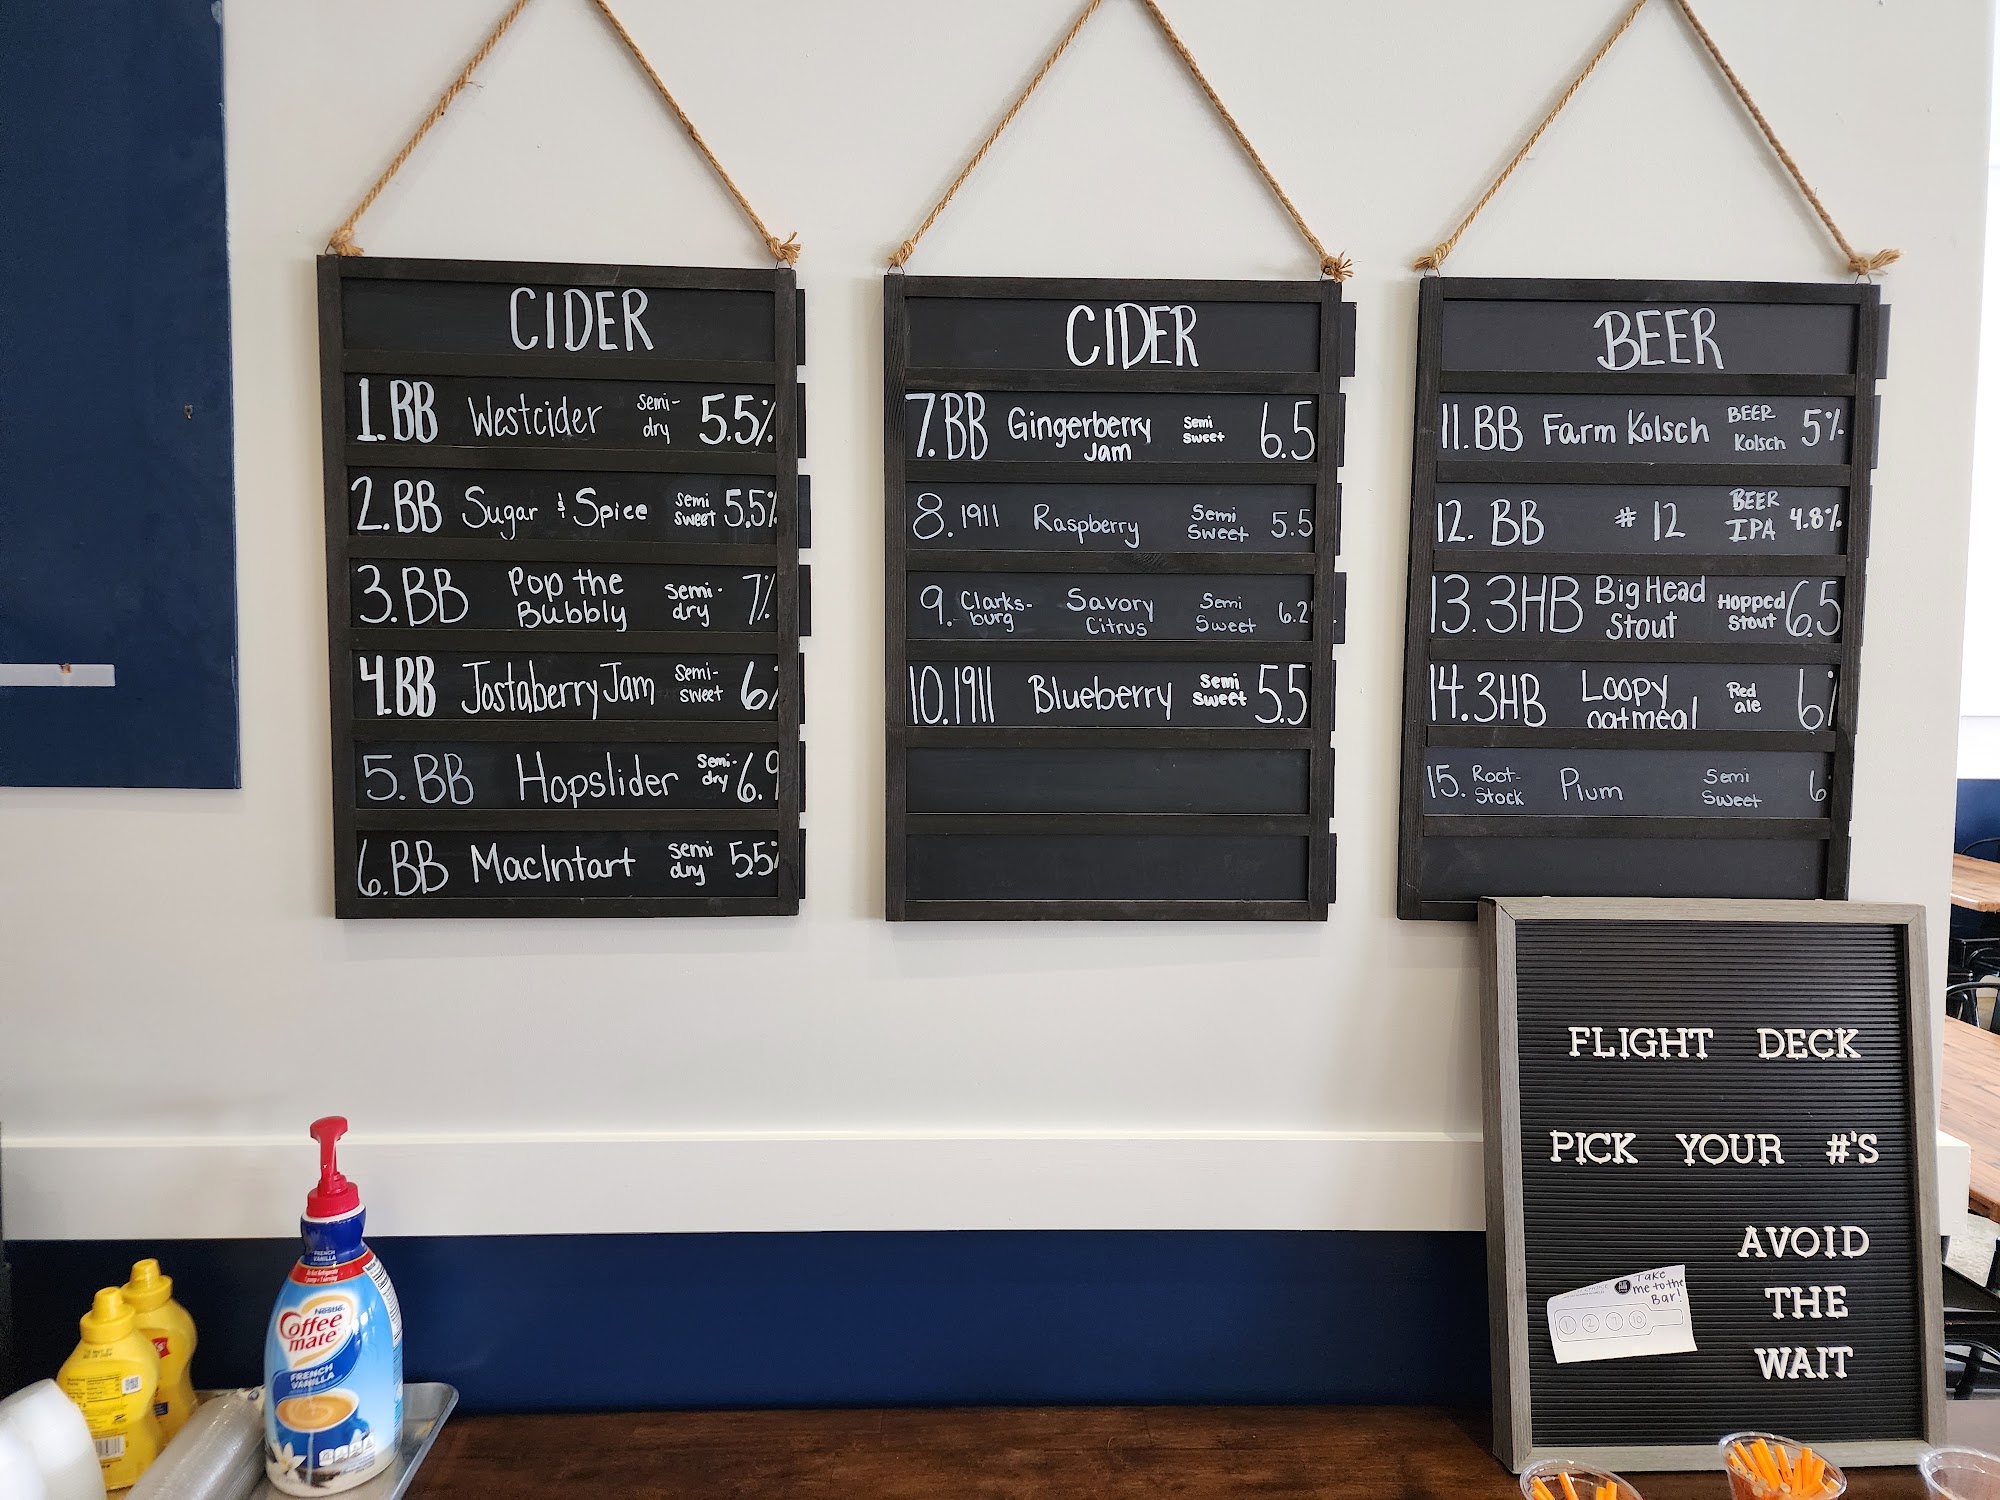 CIDER
1. BB Westcider semi-dry 5.5%
2. BB Sugar & Spice semi sweet 5.5%
3. BB Pop the Bubbly semi-dry 7%
4. BB Jostaberry Jam semi-sweet 6%
5. BB Hopslider semi-dry 6.9
6. BB MacIntart semi dry 5.5%
CIDER
7. BB Gingerberry Jam semi sweet 6.5
8. 1911 Raspberry Semi Sweet 5.5
9. Clarks-burg Savory Citrus Semi Sweet 6.2
10. 1911 Blueberry Semi Sweet 5.5
BEER
11. BB Farm Kolsch BEER Kolsch 5%
12. BB #12 BEER IPA 4.8%
13. 3HB Big Head Stout Hopped Stout 6.5
14. 3HB Loopy oatmeal Red ale 6%
15. Root-Stock Plum Semi Sweet 6
FLIGHT DECK
PICK YOUR #'S
AVOID
THE
WAIT
Take
me to the
Bar!
1 2 7 10
FRENCH
VANILLA
Nestlé
Coffee
mate
FRENCH
VANILLA